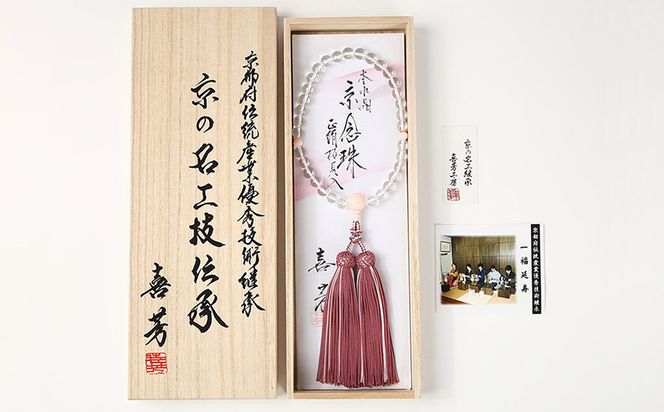 京都府伝統産業優秀技術継承
京の名工技伝承
喜芳
本水晶
京念珠
喜芳
京の名工継承
喜芳工房
京都府伝統産業優秀技術継承
一福延寿